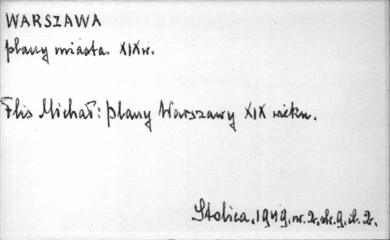 WARSZAWA
plany miasta. XIXw.
Flis Michał: plany Warszawy XIX wieku.
Stolica, 1949, nr. 2, sk. 9, il. 2.